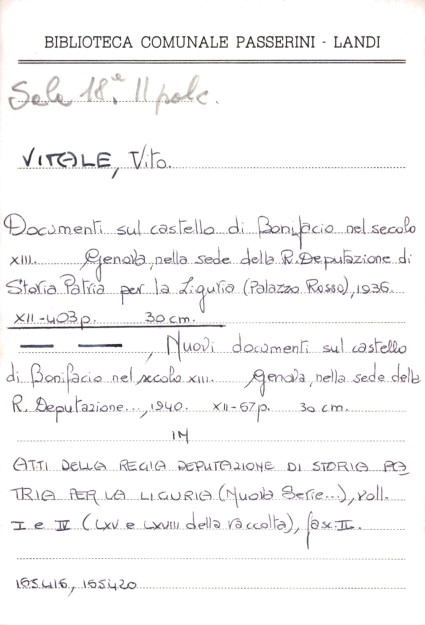 BIBLIOTECA COMUNALE PASSERINI - LANDI
Sala 18ᵉ. II palc.
VITALE, Vito.
Documenti sul castello di Bonifacio nel secolo
XIII. Genova, nella sede della R. Deputazione di
Storia Patria per la Liguria (Palazzo Rosso), 1936.
XII-403 p. 30 cm.
— —, Nuovi documenti sul castello
di Bonifacio nel secolo XIII. Genova, nella sede della
R. Deputazione..., 1940. XII-67 p. 30 cm.
IN
ATTI DELLA REGIA DEPUTAZIONE DI STORIA PA
TRIA PER LA LIGURIA (Nuova Serie...), voll.
I e IV (LXV e LXVIII della raccolta), fasc. II.
165.416, 165.420